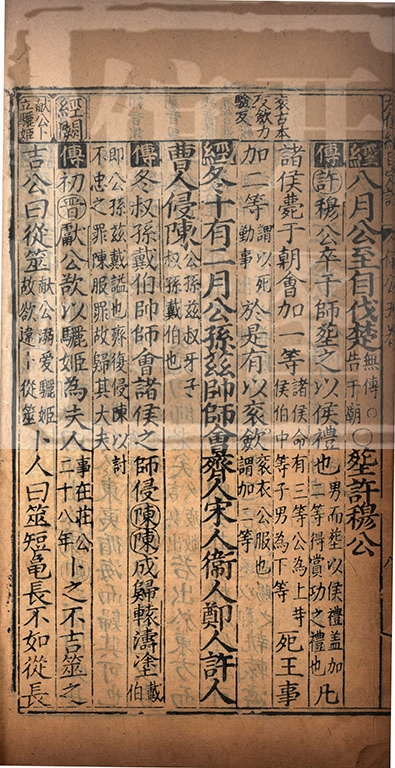 經八月公至自伐楚無傳○告于廟○葬許穆公
傳許穆公卒于師葬之以侯禮也男而葬以侯禮蓋加二等得賞功之禮也凡
諸侯薨于朝會加一等諸侯命有三等公為上等侯伯中等子男為下等死王事
衮古本反斂力驗反
加二等謂以死勤事於是有以衮斂衮衣公服也謂加二等
經冬十有二月公孫兹帥師會齊人宋人衛人鄭人許人
曹人侵陳公孫兹叔牙子叔孫戴伯也
傳冬叔孫戴伯帥師會諸侯之師侵陳陳成歸轅濤塗戴伯
即公孫兹戴謚也齊復侵陳以討不忠之罪陳服罪故歸其大夫
經闕
傳初晉獻公欲以驪姬為夫人事在莊公二十八年卜之不吉筮之
獻公卜立驪姬
吉公曰從筮獻公溺愛驪姬故欲違卜從筮卜人曰筮短龜長不如從長